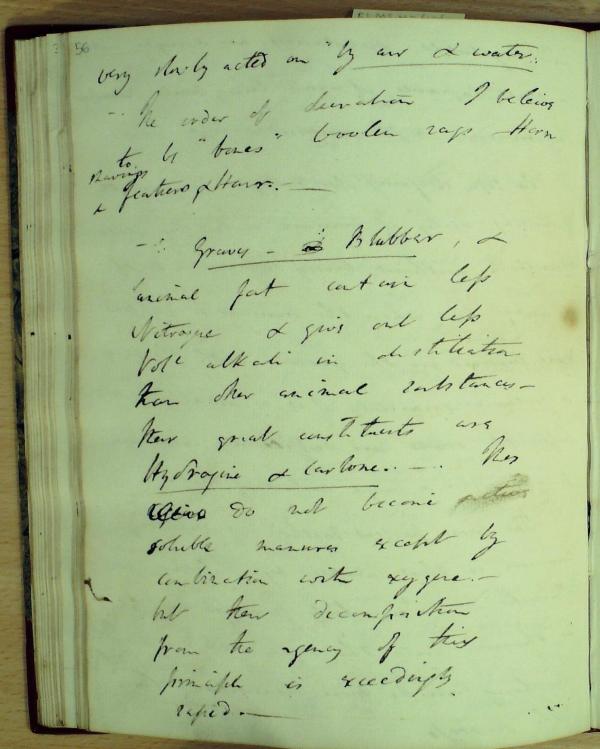 56
very slowly acted on by air & water.
- The order of duration I believe
to be "bones" woolen rags Horn
shavings
& feathers & Hair. —
- Graves - Blubber, &
animal fat contain less
Nitrogene & give out less
Vole alkali in distillation
than other animal substances -
their great constituents are
Hydrogene & carbone. - They
do not become
soluble manures except by
combination with oxygene. -
but their decomposition
from the agency of this
principle is exceedingly
rapid. —